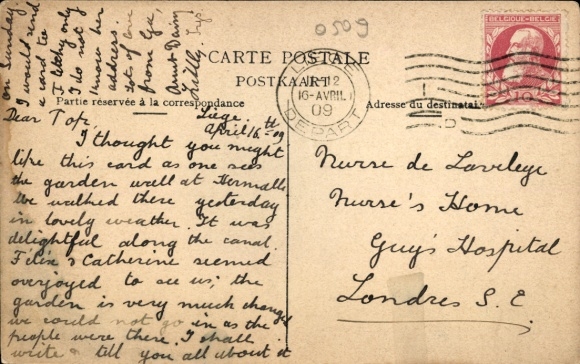 0509
CARTE POSTALE
POSTKAART
Partie réservée à la correspondance
Adresse du destinataire
BELGIQUE-BELGIË
10
LIÈGE
12
16-AVRIL
09
DEPART
Liege.
April 16th 09
Dear Top,
I thought you might
like this card as one sees
the garden wall at Hermalle
We walked there yesterday
in lovely weather. It was
delightful along the canal.
Félix & Catherine seemed
overjoyed to see us; the
garden is very much changed
we could not go in as the
people were there. I shall
write & tell you all about it
on Sunday.
I would send
a card to
Letchy only
I do not
know her
address.
Lots of love
from Ed,
Aunt Daisy
Lilly,
Nurse de Laveleye
Nurse's Home
Guy's Hospital
Londres S.E.